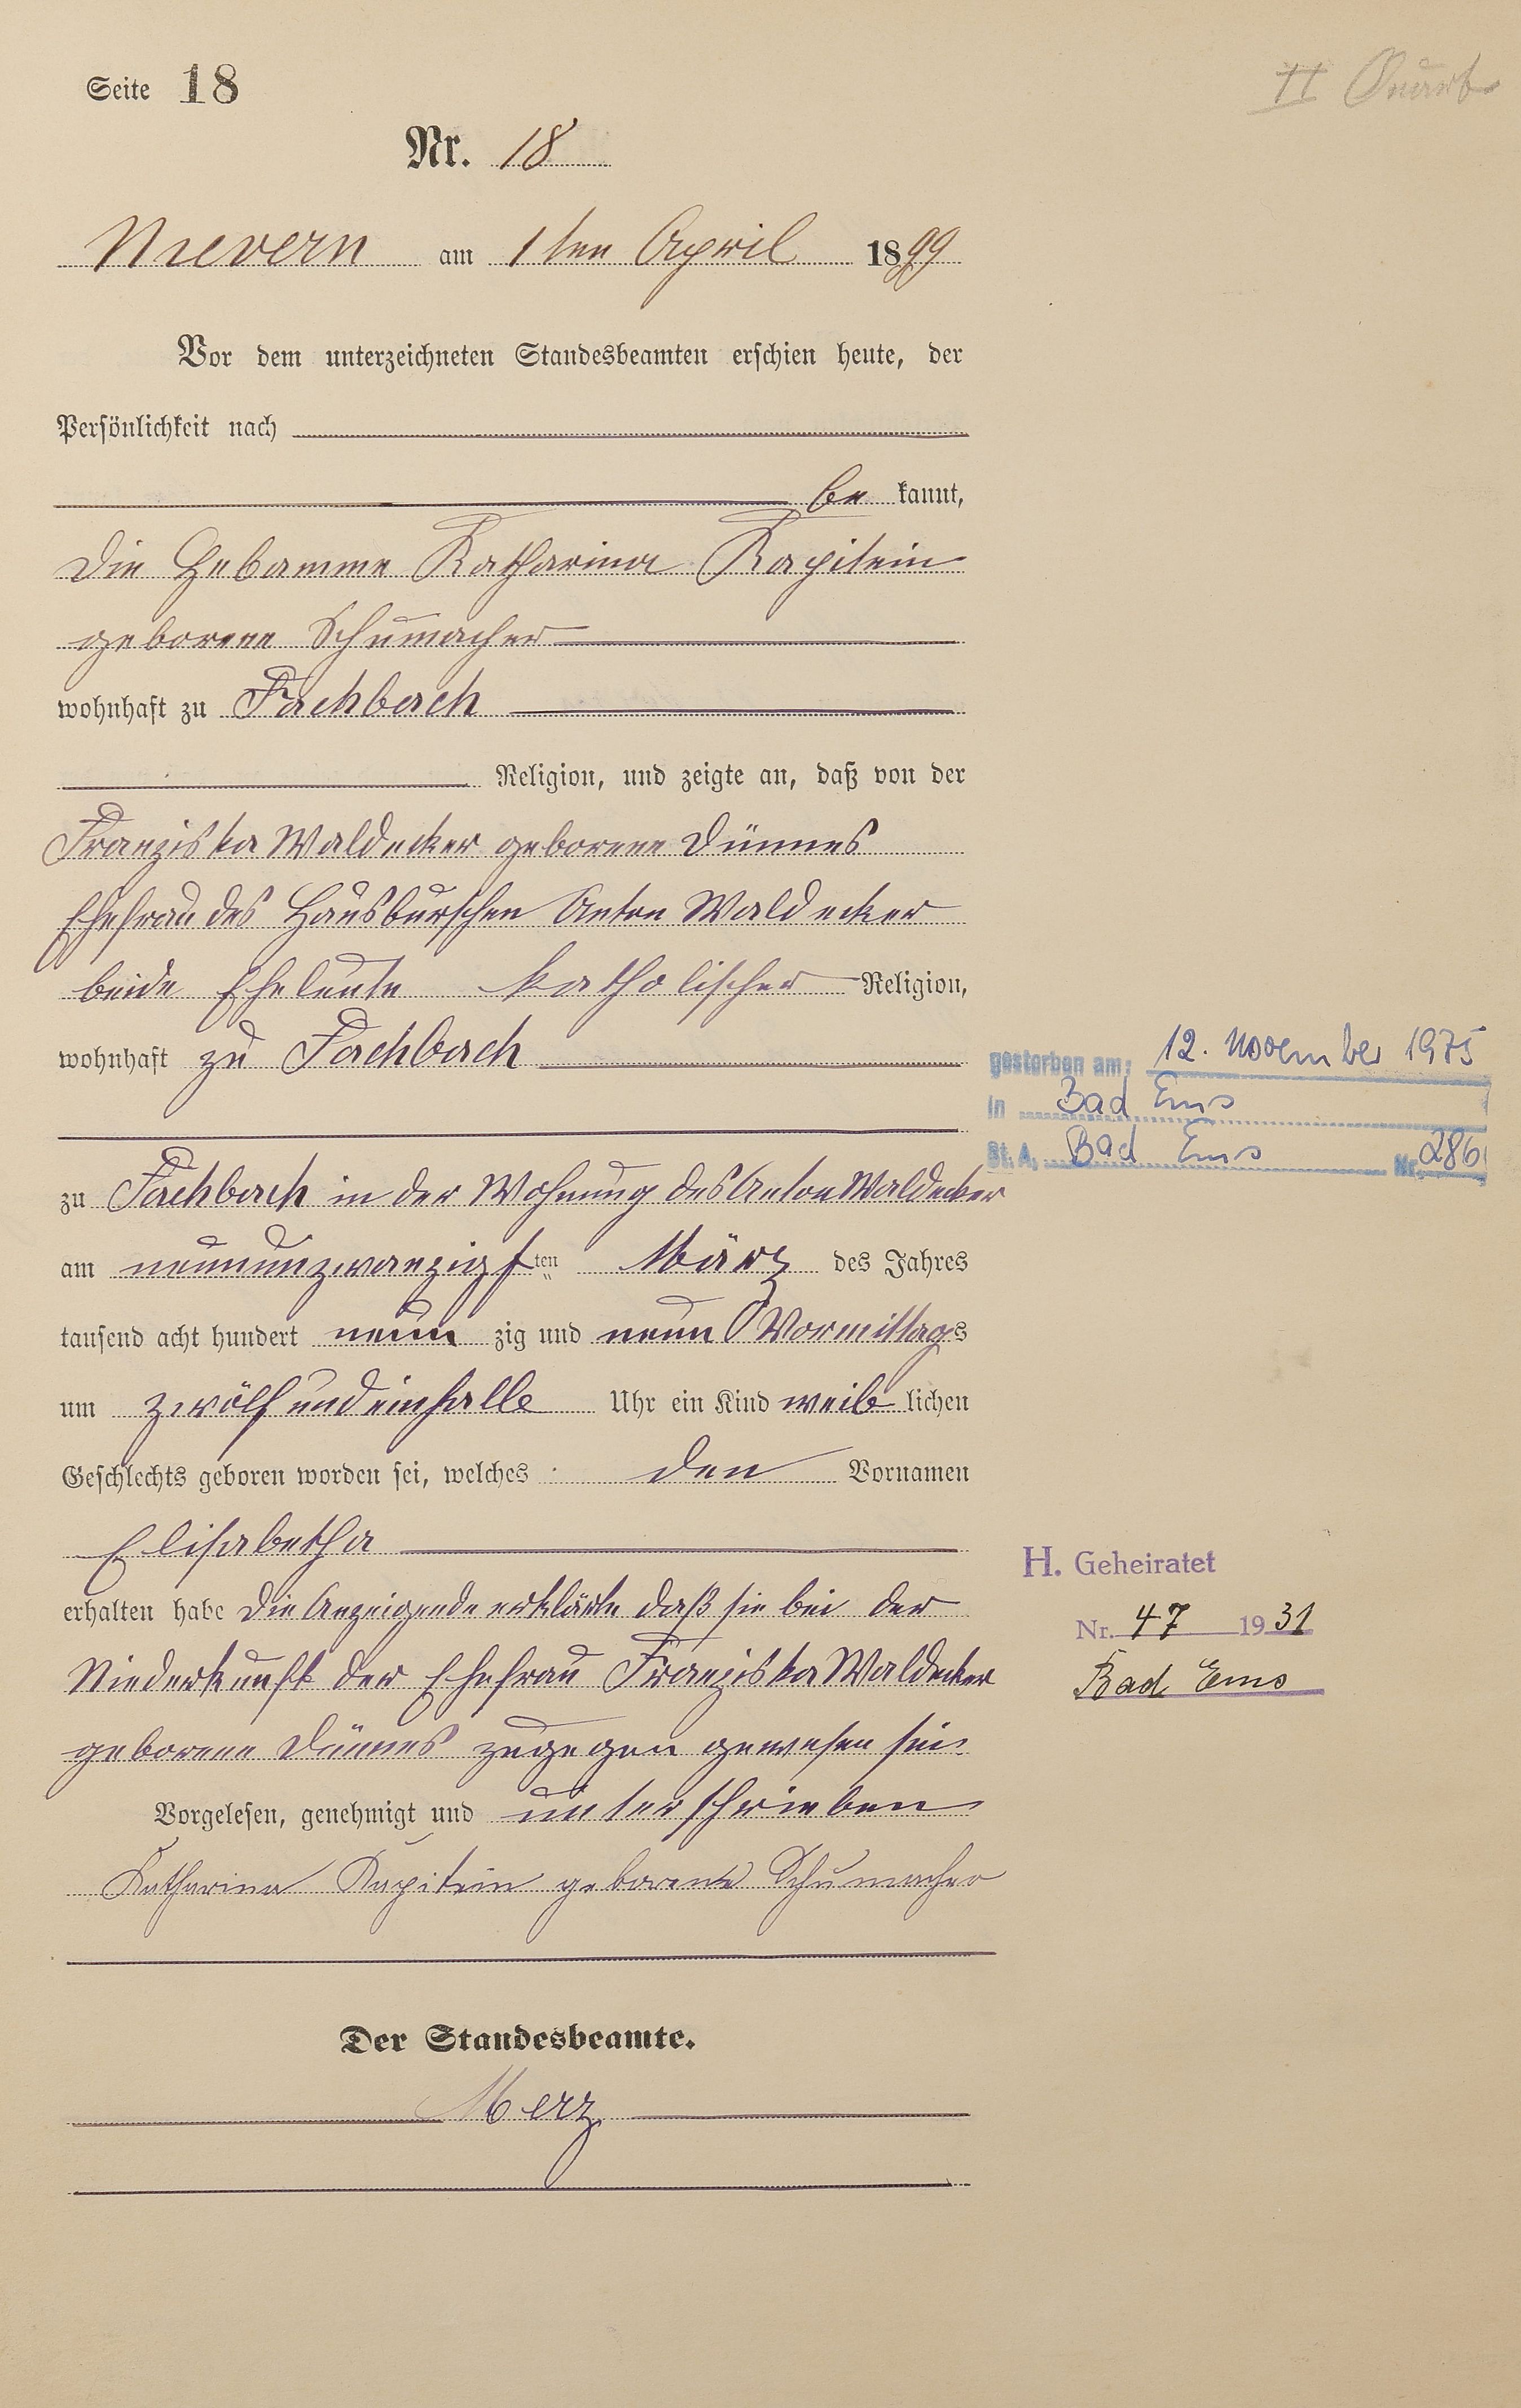 Seite 18
II Quart
Nr. 18
Nievern am 1ten April 1899
Vor dem unterzeichneten Standesbeamten erschien heute, der
Persönlichkeit nach
be kannt,
die Hebamme Katharina Kapitein
geborene Schumacher
wohnhaft zu Fachbach
Religion, und zeigte an, daß von der
Franziska Waldecker geborene Dünnes
Ehefrau des Hausburschen Anton Waldecker
beide Eheleute katholischer Religion,
wohnhaft zu Fachbach
gestorben am: 12. November 1975
in Bad Ems
St. A. Bad Ems Nr. 286
zu Fachbach in der Wohnung des Anton Waldecker
am neunundzwanzigsten März des Jahres
tausend acht hundert neun zig und neun Vormittags
um zwölf und ein halb Uhr ein Kind weib lichen
Geschlechts geboren worden sei, welches den Vornamen
Elisabetha
H. Geheiratet
erhalten habe die Anzeigende erklärte daß sie bei der
Nr. 47 1931
Niederkunft der Ehefrau Franziska Waldecker
Bad Ems
geborene Dünnes zugegen gewesen sei.
Vorgelesen, genehmigt und unterschrieben
Katharina Kapitein geborene Schumacher
Der Standesbeamte.
Merz